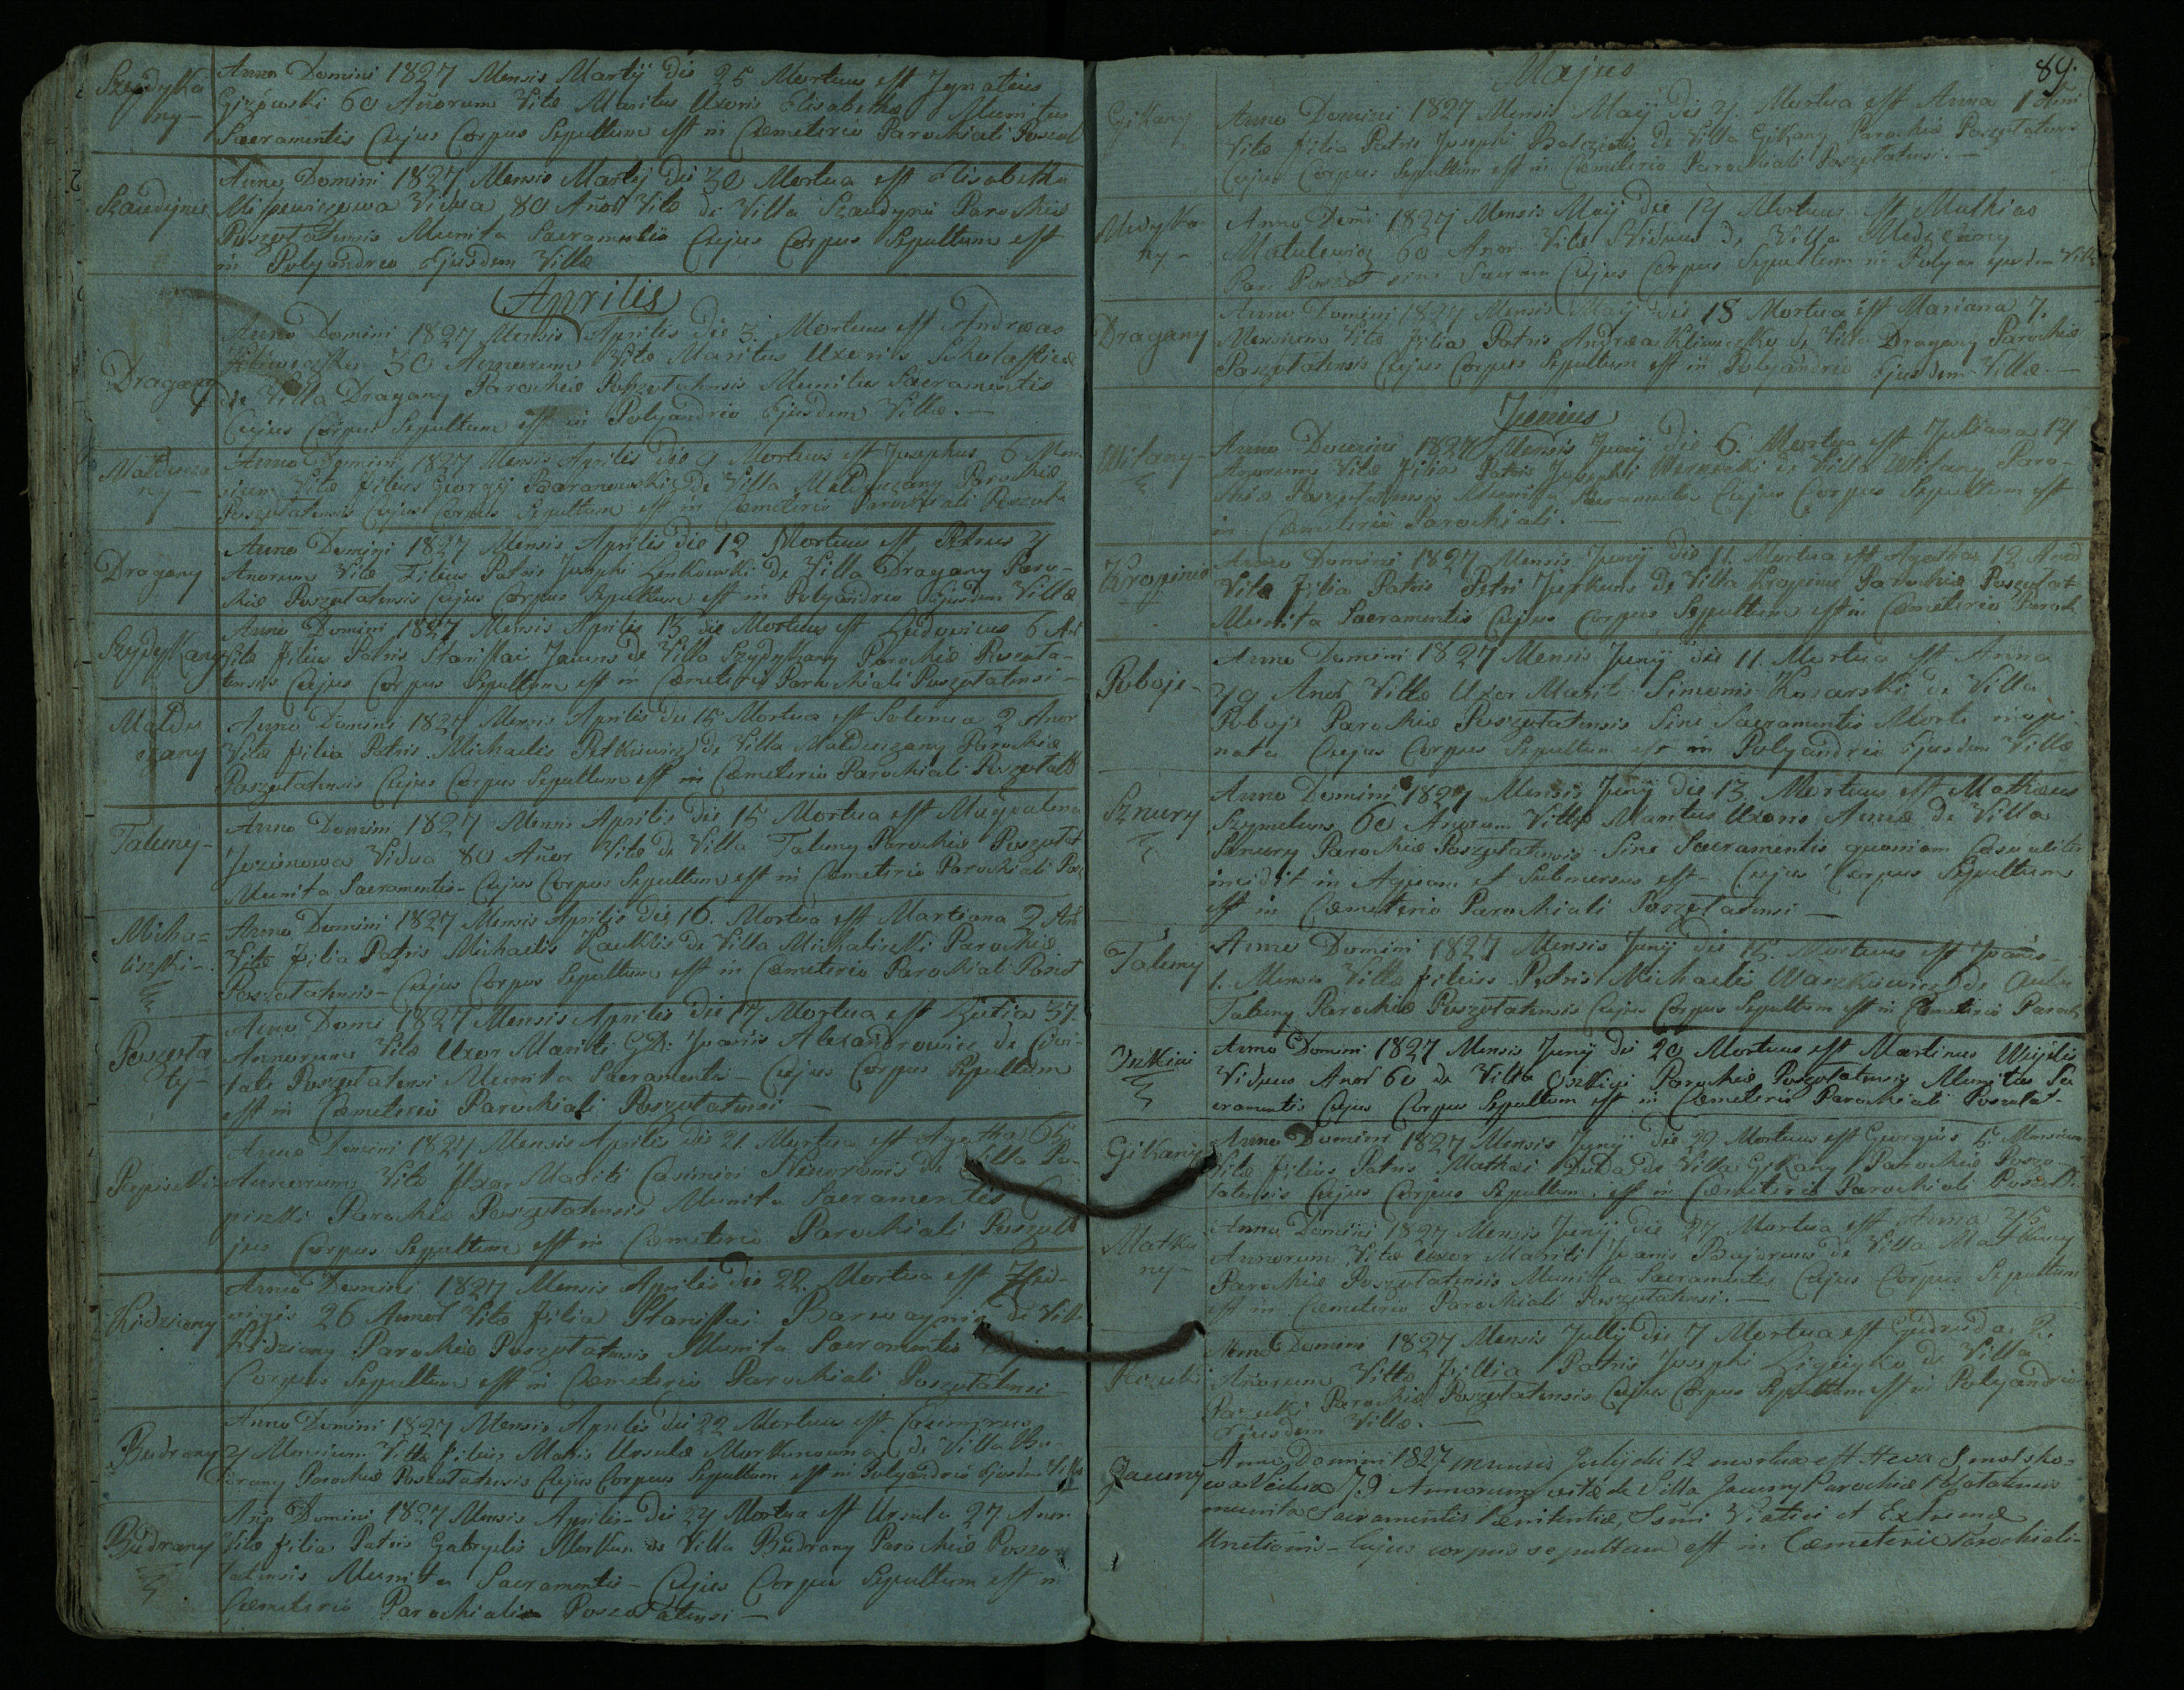 Szydyka
ny-
Anno Domini 1827 Mensis Martij die 25 Mortuus est Ignatius
Gizowski 60 Añorum Vitæ Maritus Uxoris Elisabethæ Munitus
Sacramentis Cujus Corpus Sepultum est in Cæmeterio Parochiali Poszot
Szaudynie
Anno Domini 1827 Mensis Martij die 30 Mortua est Elisabetha
Vidua 80 Añor Vitæ de Villa Szaudynie Parochiæ
Poszotatensis Munita Sacramentis Cujus Corpus Sepultum est
in Polyandrio Ejusdem Villæ
Aprilis
Dragany
Anno Domini 1827 Mensis Aprilis die 3. Mortuus est Andreas
30 Annorum Vitæ Maritus Uxoris Scholasticæ
de Villa Dragany Parochiæ Poszotatensis Munitus Sacramentis
Cujus Corpus Sepultum est in Polyandrio Ejusdem Villæ. —
Malducza
ny —
Anno Domini 1827 Mensis Aprilis die 9 Mortuus est Josephus 6 Men
sium Vitæ Filius Georgij Baranowski de Villa Malduczany Parochiæ
Poszotatensis Cujus Corpus Sepultum est in Cæmeterio Parochiali Poszota
Dragany
Anno Domini 1827 Mensis Aprilis die 12 Mortuus est Petrus 4
Anorum Vitæ Filius Patris Josephi Lenkowski de Villa Dragany Paro-
chiæ Poszotatensis Cujus Corpus Sepultum est in Polyandrio Ejusdem Villæ
Szydykany
Anno Domini 1827 Mensis Aprilis 13 die Mortuus est Ludovicus 6 An
Vitæ Filius Patris Stanislai Jacuns de Villa Szydykany Parochiæ Poszota-
tensis Cujus Corpus Sepultum est in Cæmeterio Parochiali Poszotatensi —
Maldu
czany
Anno Domini 1827 Mensis Aprilis die 15 Mortua est Salomea 2 Anor
Vitæ Filia Patris Michaelis Petkiewicz de Villa Malduczany Parochiæ
Poszotatensis Cujus Corpus Sepultum est in Cæmeterio Parochiali Poszotatt
Taluny-
Anno Domini 1827 Mensis Aprilis die 15 Mortua est Magdalena
Jozinowa Vidua 80 Añor Vitæ de Villa Taluny Parochiæ Poszotat
Munita Sacramentis - Cujus Corpus Sepultum est in Cæmeterio Parochiali Posz
Micha=
liszki-
Anno Domini 1827 Mensis Aprilis die 16. Mortua est Martiana 2 An
Vitæ Filia Patris Michaelis de Villa Michaliszki Parochiæ
Poszotatensis - Cujus Corpus Sepultum est in Cæmeterio Parochiali Poszot
Poszota
ty-
Anno Domi 1827 Mensis Aprilis die 17 Mortua est Lutia 37
Annorum Vitæ Uxor Mariti GD: Joañis Alexandrowicz de Civi-
tate Poszotatensi Munita Sacramentis - Cujus Corpus Sepultum
est in Cæmeterio Parochiali Poszotatensi —
Popiszki
Anno Domini 1827 Mensis Aprilis die 21. Mortua est Agatha 65
Annorum Vitæ Uxor Mariti Casimiri de Villa Po-
piszki Parochiæ Poszotatensis Munita Sacramentis Cu
jus Corpus Sepultum est in Cæmeterio Parochiali Poszott
Kidziany
Anno Domini 1827 Mensis Aprilis die 22. Mortua est Hed-
vigis 26 Annor Vitæ Filia Stanislai de Villa
Kidziany Parochiæ Poszotatensis Munita Sacramentis Cujus
Corpus Sepultum est in Cæmeterio Parochiali Poszotatensi
Budrany
Anno Domini 1827 Mensis Aprilis die 22 Mortuus est Cazimirus
4 Mensium Vitæ Filius Matris Ursulæ Markunowna de Villa Bu
drany Parochiæ Poszotatensis Cujus Corpus Sepultum est in Polyandrio Ejusdem Villæ
Budrany
Año Domini 1827 Mensis Aprilis die 24 Mortua est Ursula 27 Anor
Vitæ Filia Patris Gabryelis Markun de Villa Budrany Parochiæ Poszo
tatensis Munita Sacramentis - Cujus Corpus Sepultum est in
Cæmeterio Parochiali Poszotatensi —
89.
Majus
Gikany
Anno Domini 1827 Mensis Maij die 4. Mortua est Anna 1 Anni
Vitæ Filia Patris Josephi de Villa Gikany Parochiæ Poszotatens
Cujus Corpus Sepultum est in Cæmeterio Parochiali Poszotatensi. —
Anno Domi 1827 Mensis Maij die 14 Mortuus est Mathias
Matulewicz 60 Anor Vitæ Viduus de Villa
Par: Poszot sine Sacram Cujus Corpus Sepultum in Polyan ejusdem Villæ
Dragany
Anno Domini 1827 Mensis Maij die 18 Mortua est Mariana 7.
Mensium Vitæ Filia Patris Andreæ de Villa Dragany Parochiæ
Poszotatensis Cujus Corpus Sepultum est in Polyandrio Ejusdem Villæ. —
Junius
Witany-
Anno Domini 1827 Mensis Junij die 6. Mortua est Juliana 14
Anorum Vitæ Filia Patris Josephi de Villa Witany Paro-
chiæ Poszotatensis Munita Sacramentis Cujus Corpus Sepultum est
in Cæmeterio Parochiali. —
Kropinie
Anno Domini 1827 Mensis Junij die 11. Mortua est Agatha 12 Anor
Vitæ Filia Patris Petri de Villa Kropinie Parochiæ Poszotat
Munita Sacramentis Cujus Corpus Sepultum est in Cæmeterio Paroch
Poboje-
Anno Domini 1827 Mensis Junij die 11. Mortua est Anna
40 Anor Vitæ Uxor Mariti Simonis Kosarski de Villa
Poboje Parochiæ Poszotatensis Sine Sacramentis Morte inopi-
nata Cujus Corpus Sepultum est in Polyandrio Ejusdem Villæ
Sznury
Anno Domini 1827 Mensis Junij die 13 Mortuus est Mathæus
60 Anorum Vitæ Maritus Uxoris Annæ de Villa
Sznury Parochiæ Poszotatensis Sine Sacramentis quoniam Casualiter
incidit in Aquam et Submersus est - Cujus Corpus Sepultum
est in Cæmeterio Parochiali Poszotatensi —
Taluny
Anno Domini 1827 Mensis Junij die 15. Mortuus est Joañes
1. Mensis Vitæ Filius Patris Michaelis Waszkiewicz de Aula
Taluny Parochiæ Poszotatensis Cujus Corpus Sepultum est in Cæmeterio Paroch
Anno Domini 1827 Mensis Junij die 20 Mortuus est Martinus
Viduus Anor 60 de Villa Parochiæ Poszotatensis Munitus Sa
cramentis Cujus Corpus Sepultum est in Cæmeterio Parochiali Poszotat-
Gikany
Anno Domini 1827 Mensis Junij die 22 Mortuus est Georgius 5 Mensium
Vitæ Filius Patris Mathæi Duda de Villa Gikany Parochiæ Poszo-
tatensis Cujus Corpus Sepultum est in Cæmeterio Parochiali Poszott
Matku
ny-
Anno Domini 1827 Mensis Junij die 27 Mortua est Anna 45
Annorum Vitæ Uxor Mariti Joanis Bujoruns de Villa Matkuny
Parochiæ Poszotatensis Munita Sacramentis Cujus Corpus Sepultum
est in Cæmeterio Parochiali Poszotatensi. —
Anno Domini 1827 Mensis Julij die 7 Mortua est Gedruda 2.
Añorum Vitæ Filia Patris Josephi de Villa
Parochiæ Poszotatensis Cujus Corpus Sepultum est in Polyandrio
Ejusdem Villæ. —
Jacuny
Anno Domini 1827 mensis Julij die 12 mortua est Hewa Smolsko=
wa Vidua 79 Annorum vitæ de Villa Jacuny Parochiæ Poszotatensis
munita Sacramentis Pænitentiæ, Ssmi Viatici et Extremæ
Unctionis - Cujus corpus sepultum est in Cæmeterio Parochiali-